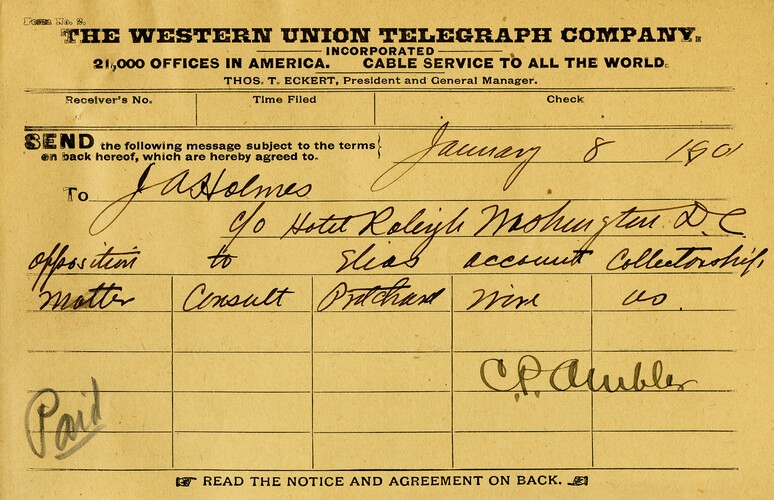 Form No. 2.
THE WESTERN UNION TELEGRAPH COMPANY.
INCORPORATED
21,000 OFFICES IN AMERICA. CABLE SERVICE TO ALL THE WORLD.
THOS. T. ECKERT, President and General Manager.
Receiver's No. Time Filed Check
SEND the following message subject to the terms
on back hereof, which are hereby agreed to.
January 8 1901
To J A Holmes
c/o Hotel Raleigh Washington D.C
opposition to Elias account Collectorship
Matter Consult Pritchard Wire us.
C.P. Ambler
Paid
READ THE NOTICE AND AGREEMENT ON BACK.